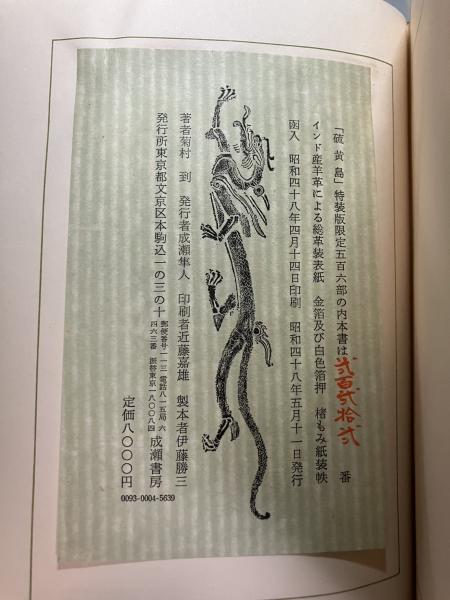 「硫黄島」特装版限定五百六部の内本書は弐百弐拾弐番
インド産羊革による総革装表紙 金箔及び白色箔押 楮もみ紙装帙
函入 昭和四十八年四月十四日印刷 昭和四十八年五月十一日発行
著者菊村 到 発行者成瀬隼人 印刷者近藤嘉雄 製本者伊藤勝三
発行所東京都文京区本駒込一の三の十 郵便番号一一三 電話八一五局 六四六三番 振替東京一八〇〇八四 成瀬書房
定価八〇〇〇円
0093-0004-5639